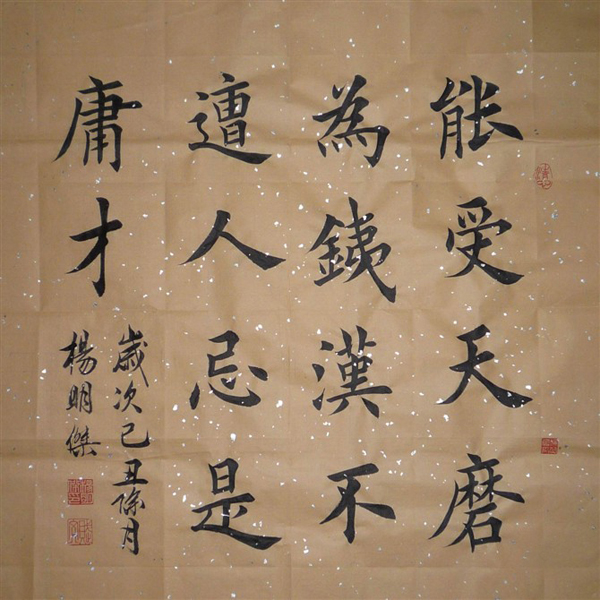 能受天磨
為銕漢不
遭人忌是
庸才
歲次己丑陰月
楊明傑